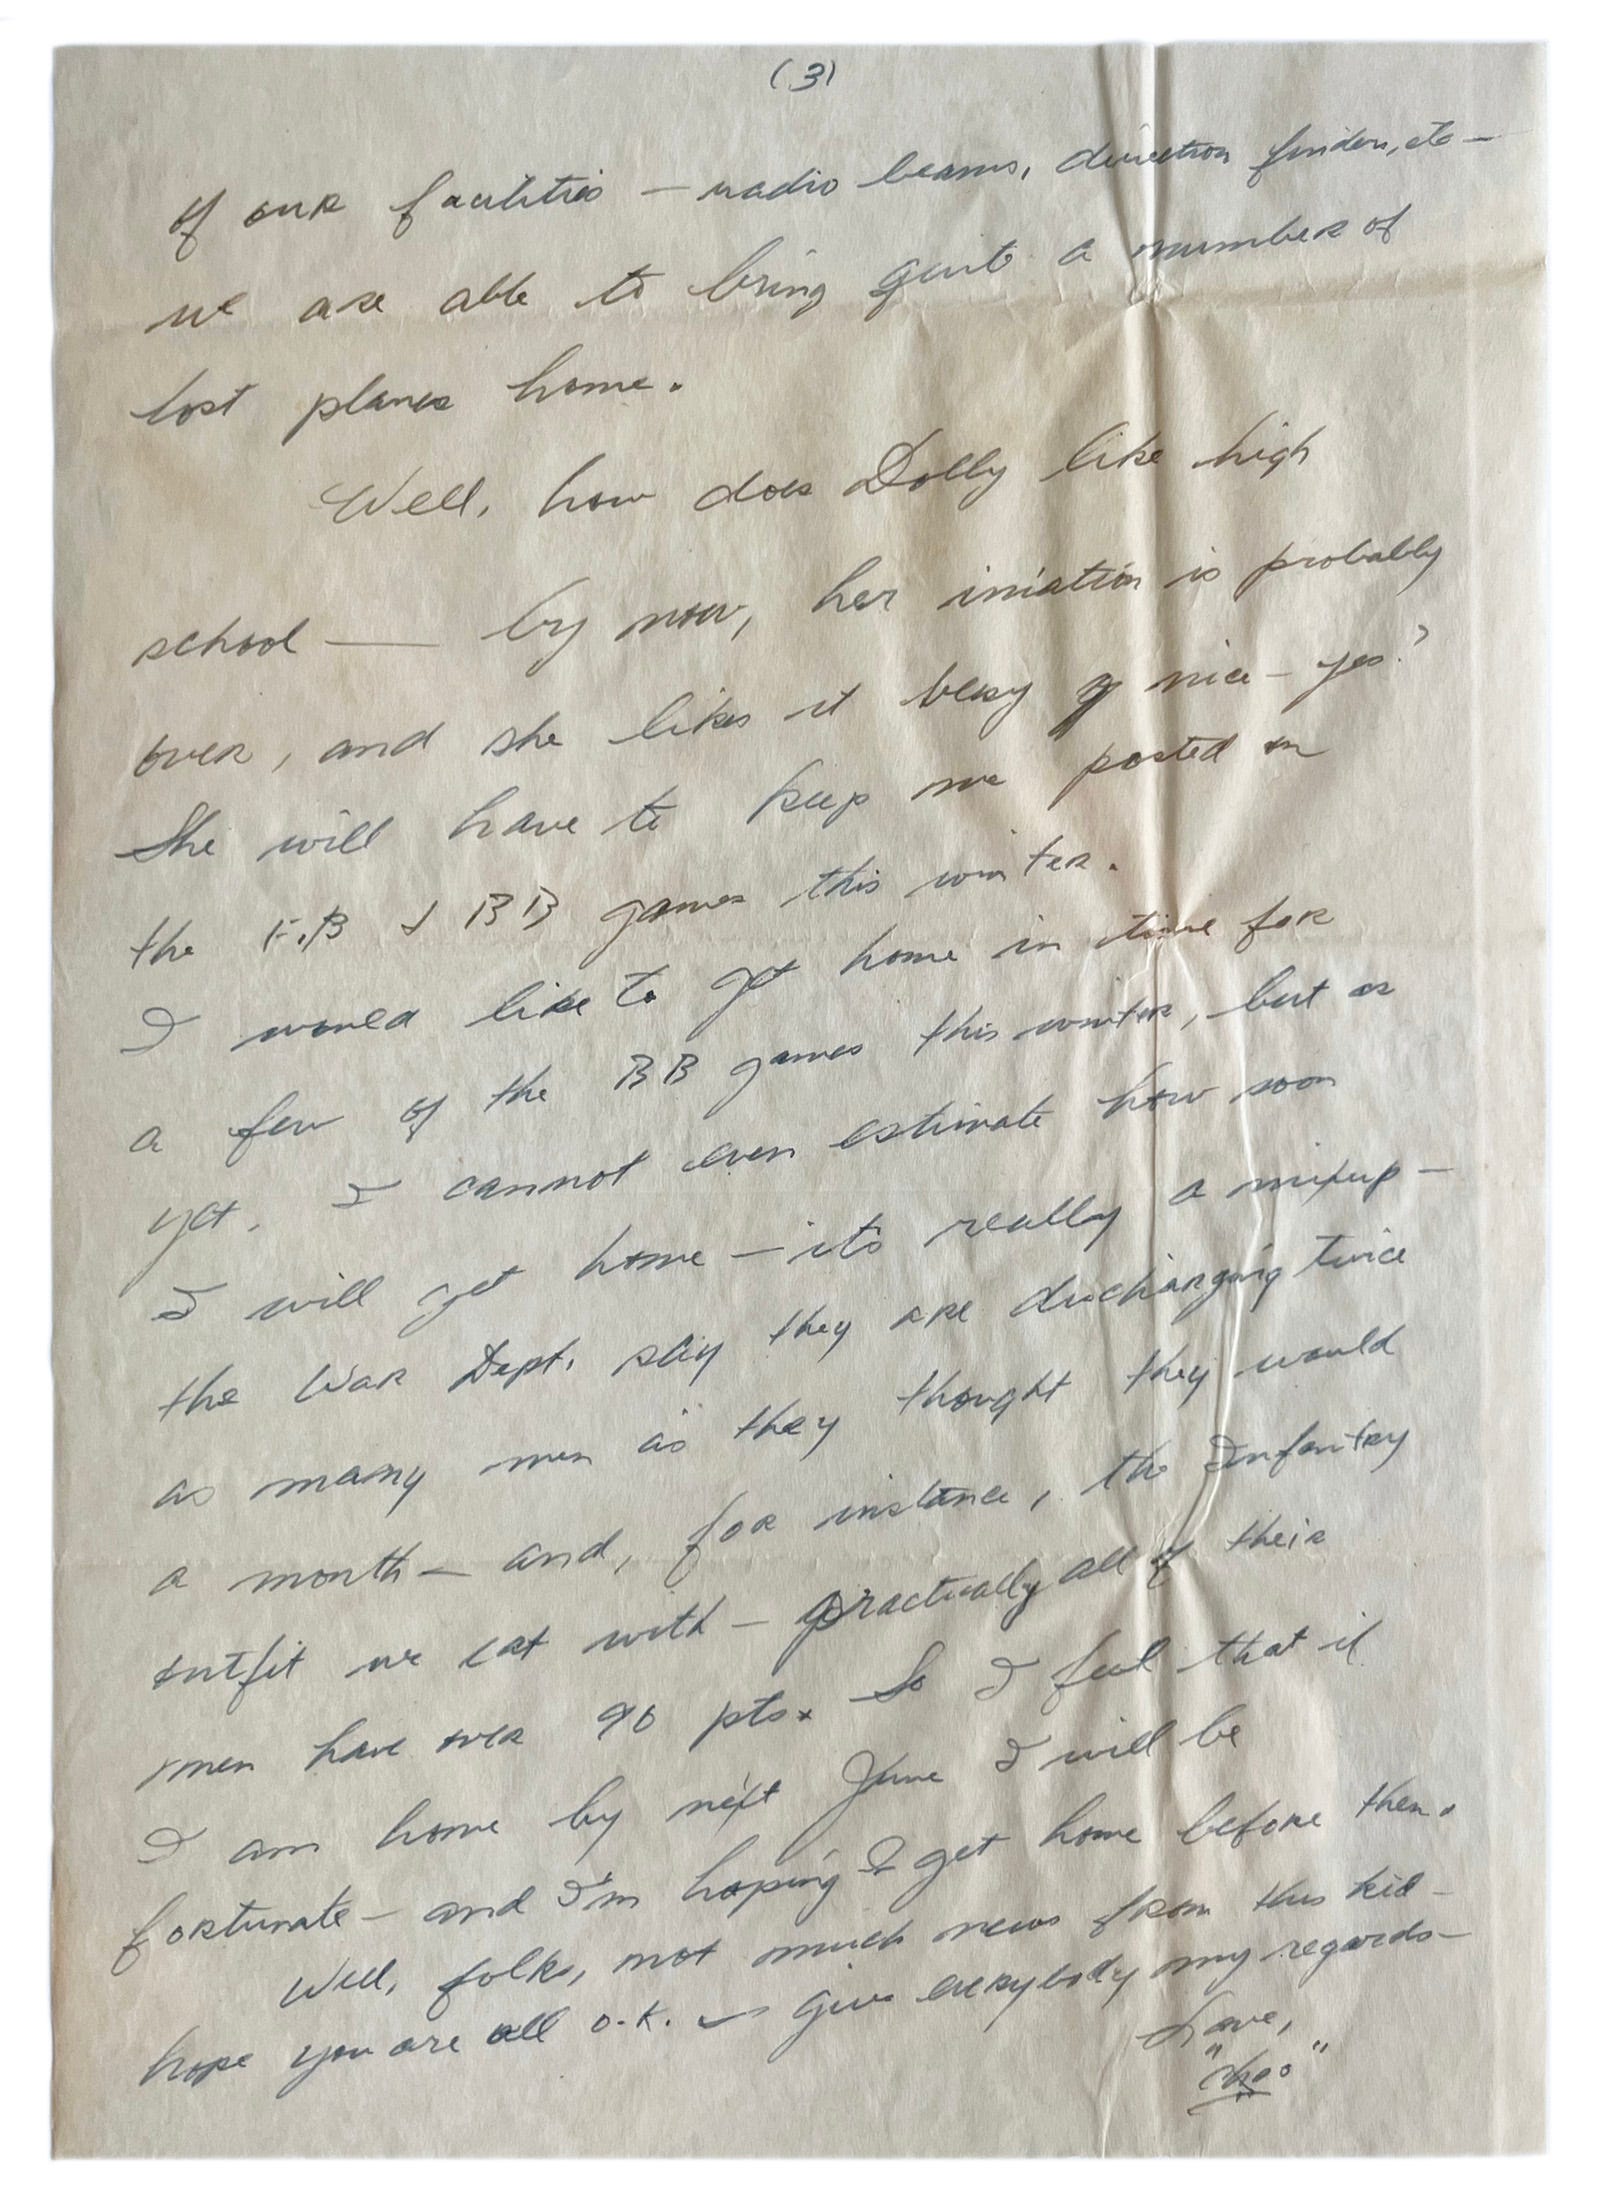 (3)
of our facilities — radio beams, direction finders, etc —
we are able to bring quite a number of
lost planes home.
Well, how does Dolly like high
school — by now, her iniation is probably
over, and she likes it very nice — yes?
She will have to keep me posted on
the F.B & BB games this winter.
I would like to get home in time for
a few of the BB games this winter, but as
yet, I cannot even estimate how soon
I will get home — it's really a mixup —
the War Dept. say they are discharging twice
as many men as they thought they would
a month — and, for instance, the Infantry
outfit we eat with — practically all of their
men have over 90 pts. So I feel that if
I am home by next June I will be
fortunate — and I'm hoping I get home before then.
Well, folks, not much news from this kid —
hope you are all o.k. — give everybody my regards —
Love,